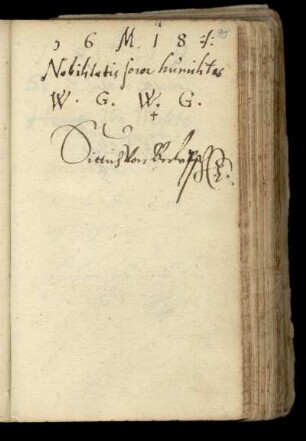 5 6 M 1 8 ·/·
Nobilitatis soror humilitas
W . G . W . G .
+
Dittrich von